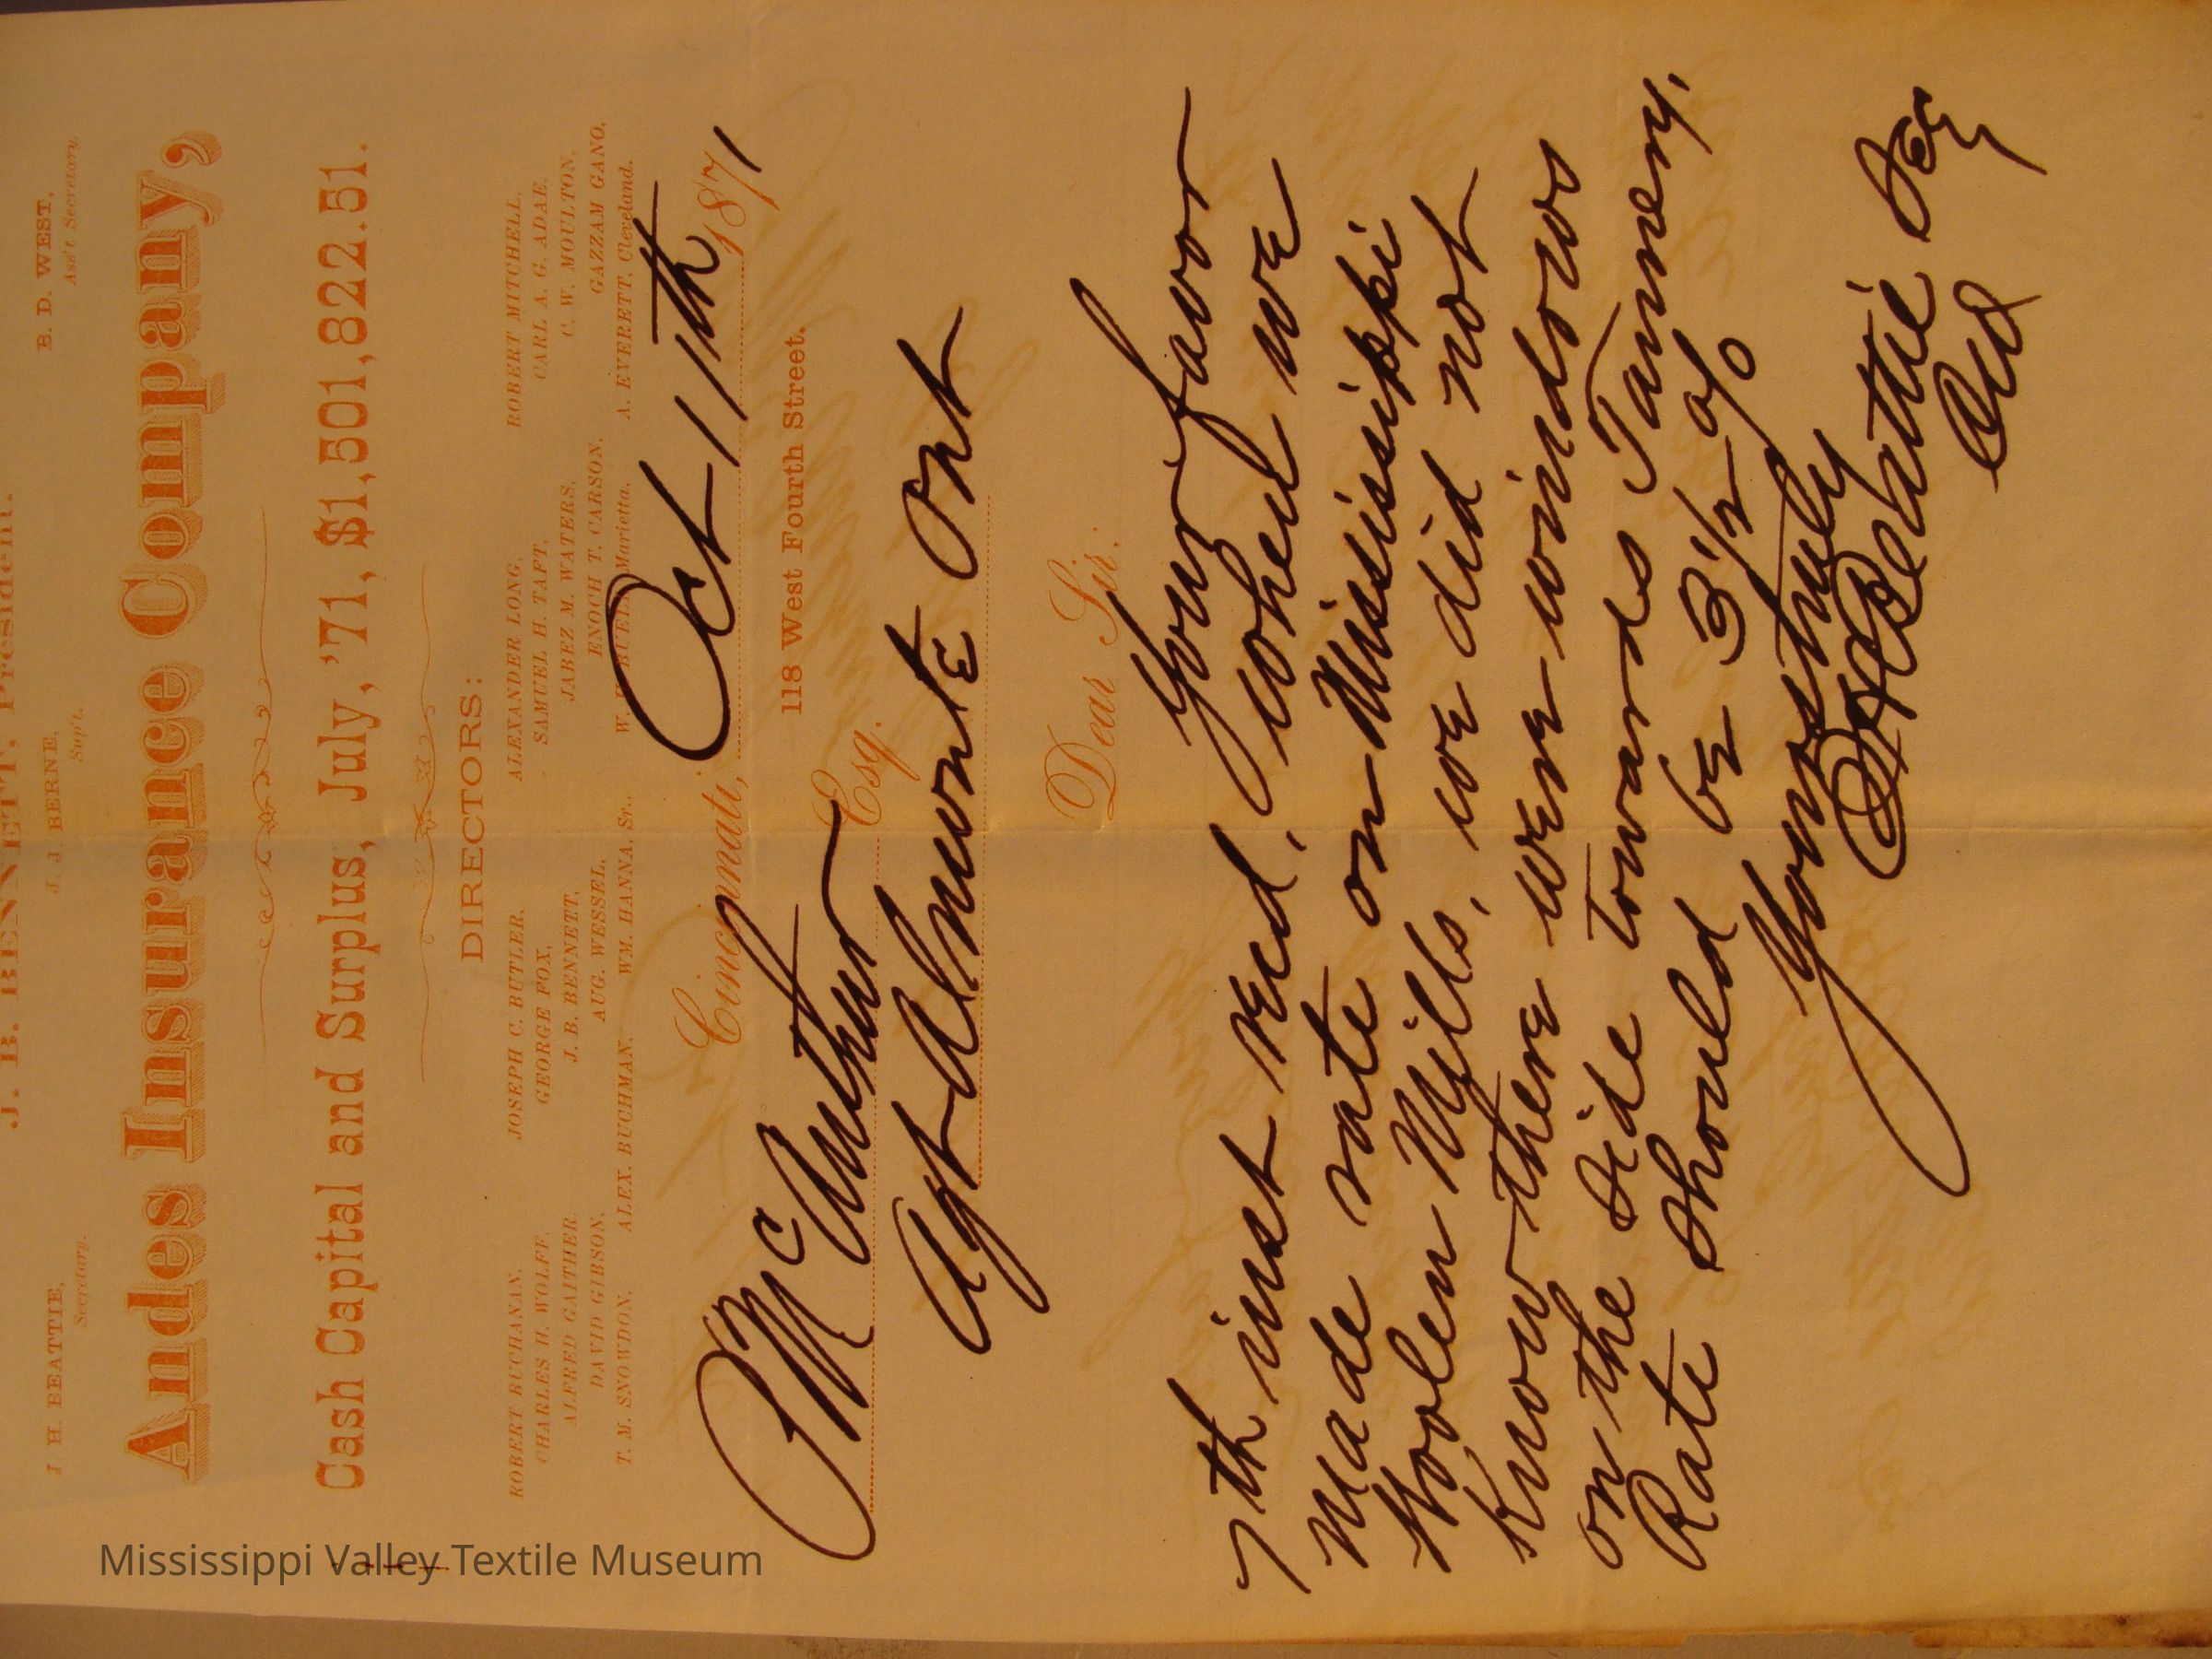 J. B. BENNETT, President.
J. H. BEATTIE, Secretary.
J. J. BERNE, Sup't.
B. D. WEST, Ass't Secretary.
Andes Insurance Company,
Cash Capital and Surplus, July, '71, $1,501,822.51.
DIRECTORS:
ROBERT BUCHANAN,
CHARLES H. WOLFF,
ALFRED GAITHER,
DAVID GIBSON,
T. M. SNOWDON,
JOSEPH C. BUTLER,
GEORGE FOX,
J. B. BENNETT,
AUG. WESSEL,
ALEX. BUCHMAN,
WM. HANNA, Sr.,
ALEXANDER LONG,
SAMUEL H. TAFT,
JABEZ M. WATERS,
ENOCH T. CARSON,
W. F. BUELL, Marietta.
ROBERT MITCHELL,
CARL A. G. ADAE,
C. W. MOULTON,
GAZZAM GANO,
A. EVERETT, Cleveland.
Cincinnati, Oct 11th 1871
118 West Fourth Street.
McArthur Esq.
Agt Almonte Ont
Dear Sir:
Your favor
7th inst recd, when we
made rate on Mississippi
Woolen Mills, we did not
know there were windows
on the side towards Tannery.
Rate should be 3 1/2 %
Yours truly
J H Beattie Secy
Mississippi Valley Textile Museum